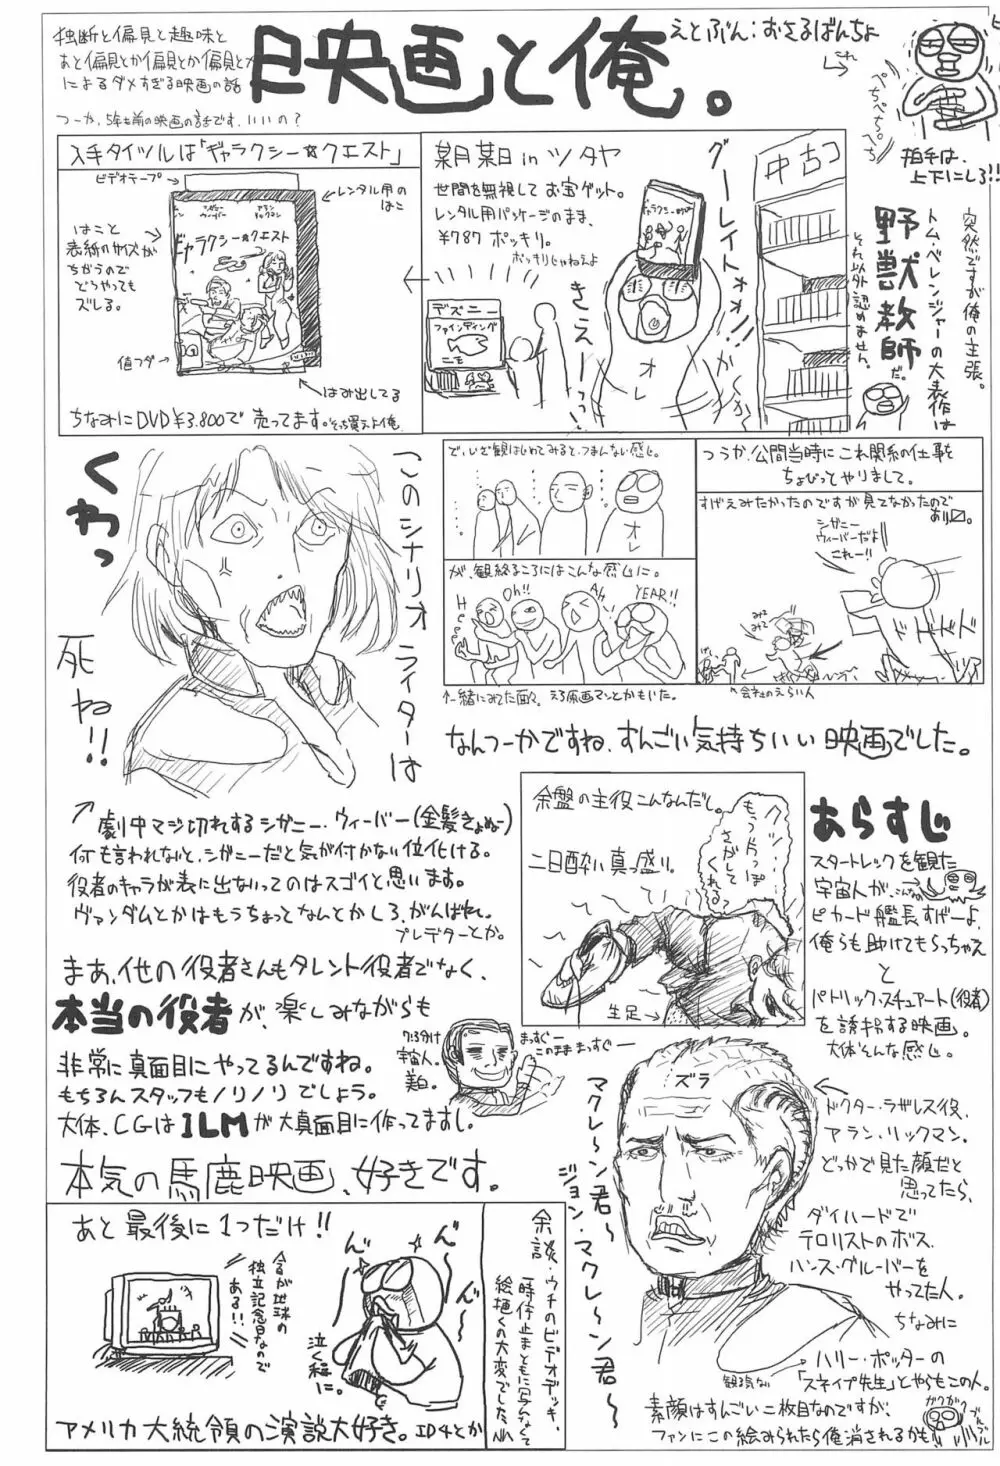 独断と偏見と趣味と
あと偏見とか偏見とか偏見とか
によるダメすぎる映画の話
つーか、5年も前の映画の話です。いいの？
映画と俺。
えとぶん：おさるばんちょ
これ
ぺちぺち。ぺち
拍手は、
上下にしろ!!
入手タイツルは「ギャラクシー☆クエスト」
ビデオテープ
レンタル用の
はこ
はこと
表紙のサイズが
ちがうので
どうやっても
ズレる。
シガニー
ウィーバー
アラン
リックマン
ギャラクシー☆クエスト
値フダ
はみ出してる
ちなみにDVD¥3.800で売ってます。そっち買えよ俺
in ツタヤ
世間を無視してお宝ゲット。
レンタル用パッケージのまま、
¥787 ポッキリ。
ポッキリじゃねえよ
グーレイトォォ!!
きえーーっっ
オレ
ディズニー
ファインディング
ニモ
中古コ
突然ですが俺の主張。
トム・ベレンジャーの大表作は
野獣教師だ。
それ以外認めません。
くわっ
このシナリオライターは
死ね!!
で、いざ観はじめてみると、つまんない感じ。
オレ
が、観終るころにはこんな感じに。
Oh!!
Ah
YEAR!!
↑一緒にみてた面々。えろ原画マンとかもいた。
つうか、公開当時にこれ関係の仕事を
ちょびっとやりまして。
すげえみたかったのですが見てなかったので
あります。
シガニー
ウィーバーだよ
これー!!
みて
みて
ドドドド
会社のえらい人
なんつーかですね、すんごい気持ちいい映画でした。
劇中マジ切れするシガニー・ウィーバー(金髪きょぬー)
何も言われないと、シガニーだと気が付かない位化ける。
役者のキャラが表に出ないってのはスゴイと思います。
ヴァンダムとかはもうちょっとなんとかしろ、がんばれ。
プレデターとか。
まあ、他の役者さんもタレント役者でなく、
本当の役者が、楽しみながらも
非常に真面目にやってるんですね。
もちろんスタッフもノリノリでしょう。
大体、CGはILMが大真面目に作ってますし。
本気の馬鹿映画、好きです。
7:3分け
宇宙人。
美白。
まっすぐー
このまままっすぐー
余盤の主役こんなんだし。
二日酔い真っ盛り。
もう一人っぽ
さがして
くれる？
生足→
あらすじ
スタートレックを観た
宇宙人が、
こんなの
ピカード艦長すげーよ、
俺らも助けてもらっちゃえ
と
パトリック・スチュアート(役者)
を誘拐する映画。
大体そんな感じ。
ズラ
マクレ〜ン君〜
ジョン・マクレ〜ン君〜
ドクター・ラザレス役、
アラン・リックマン。
どっかで見た顔だと
思ってたら、
ダイハードで
テロリストのボス、
ハンス・グルーバーを
やってた人。
ちなみに
ハリー・ポッターの
「スネイプ先生」とやらもこの人。
観る気ない
素顔はすんごい二枚目なのですが、
ファンにこの絵みられたら俺消されるかも
ガクガクブルブル
あと最後に1つだけ!!
今日が地球の
独立記念日なので
ある!!
泣く程に。
アメリカ大統領の演説大好き。ID4とか
余談・ウチのビデオデッキ、
一時停止まともに写んなくて
絵描くの大変でした。